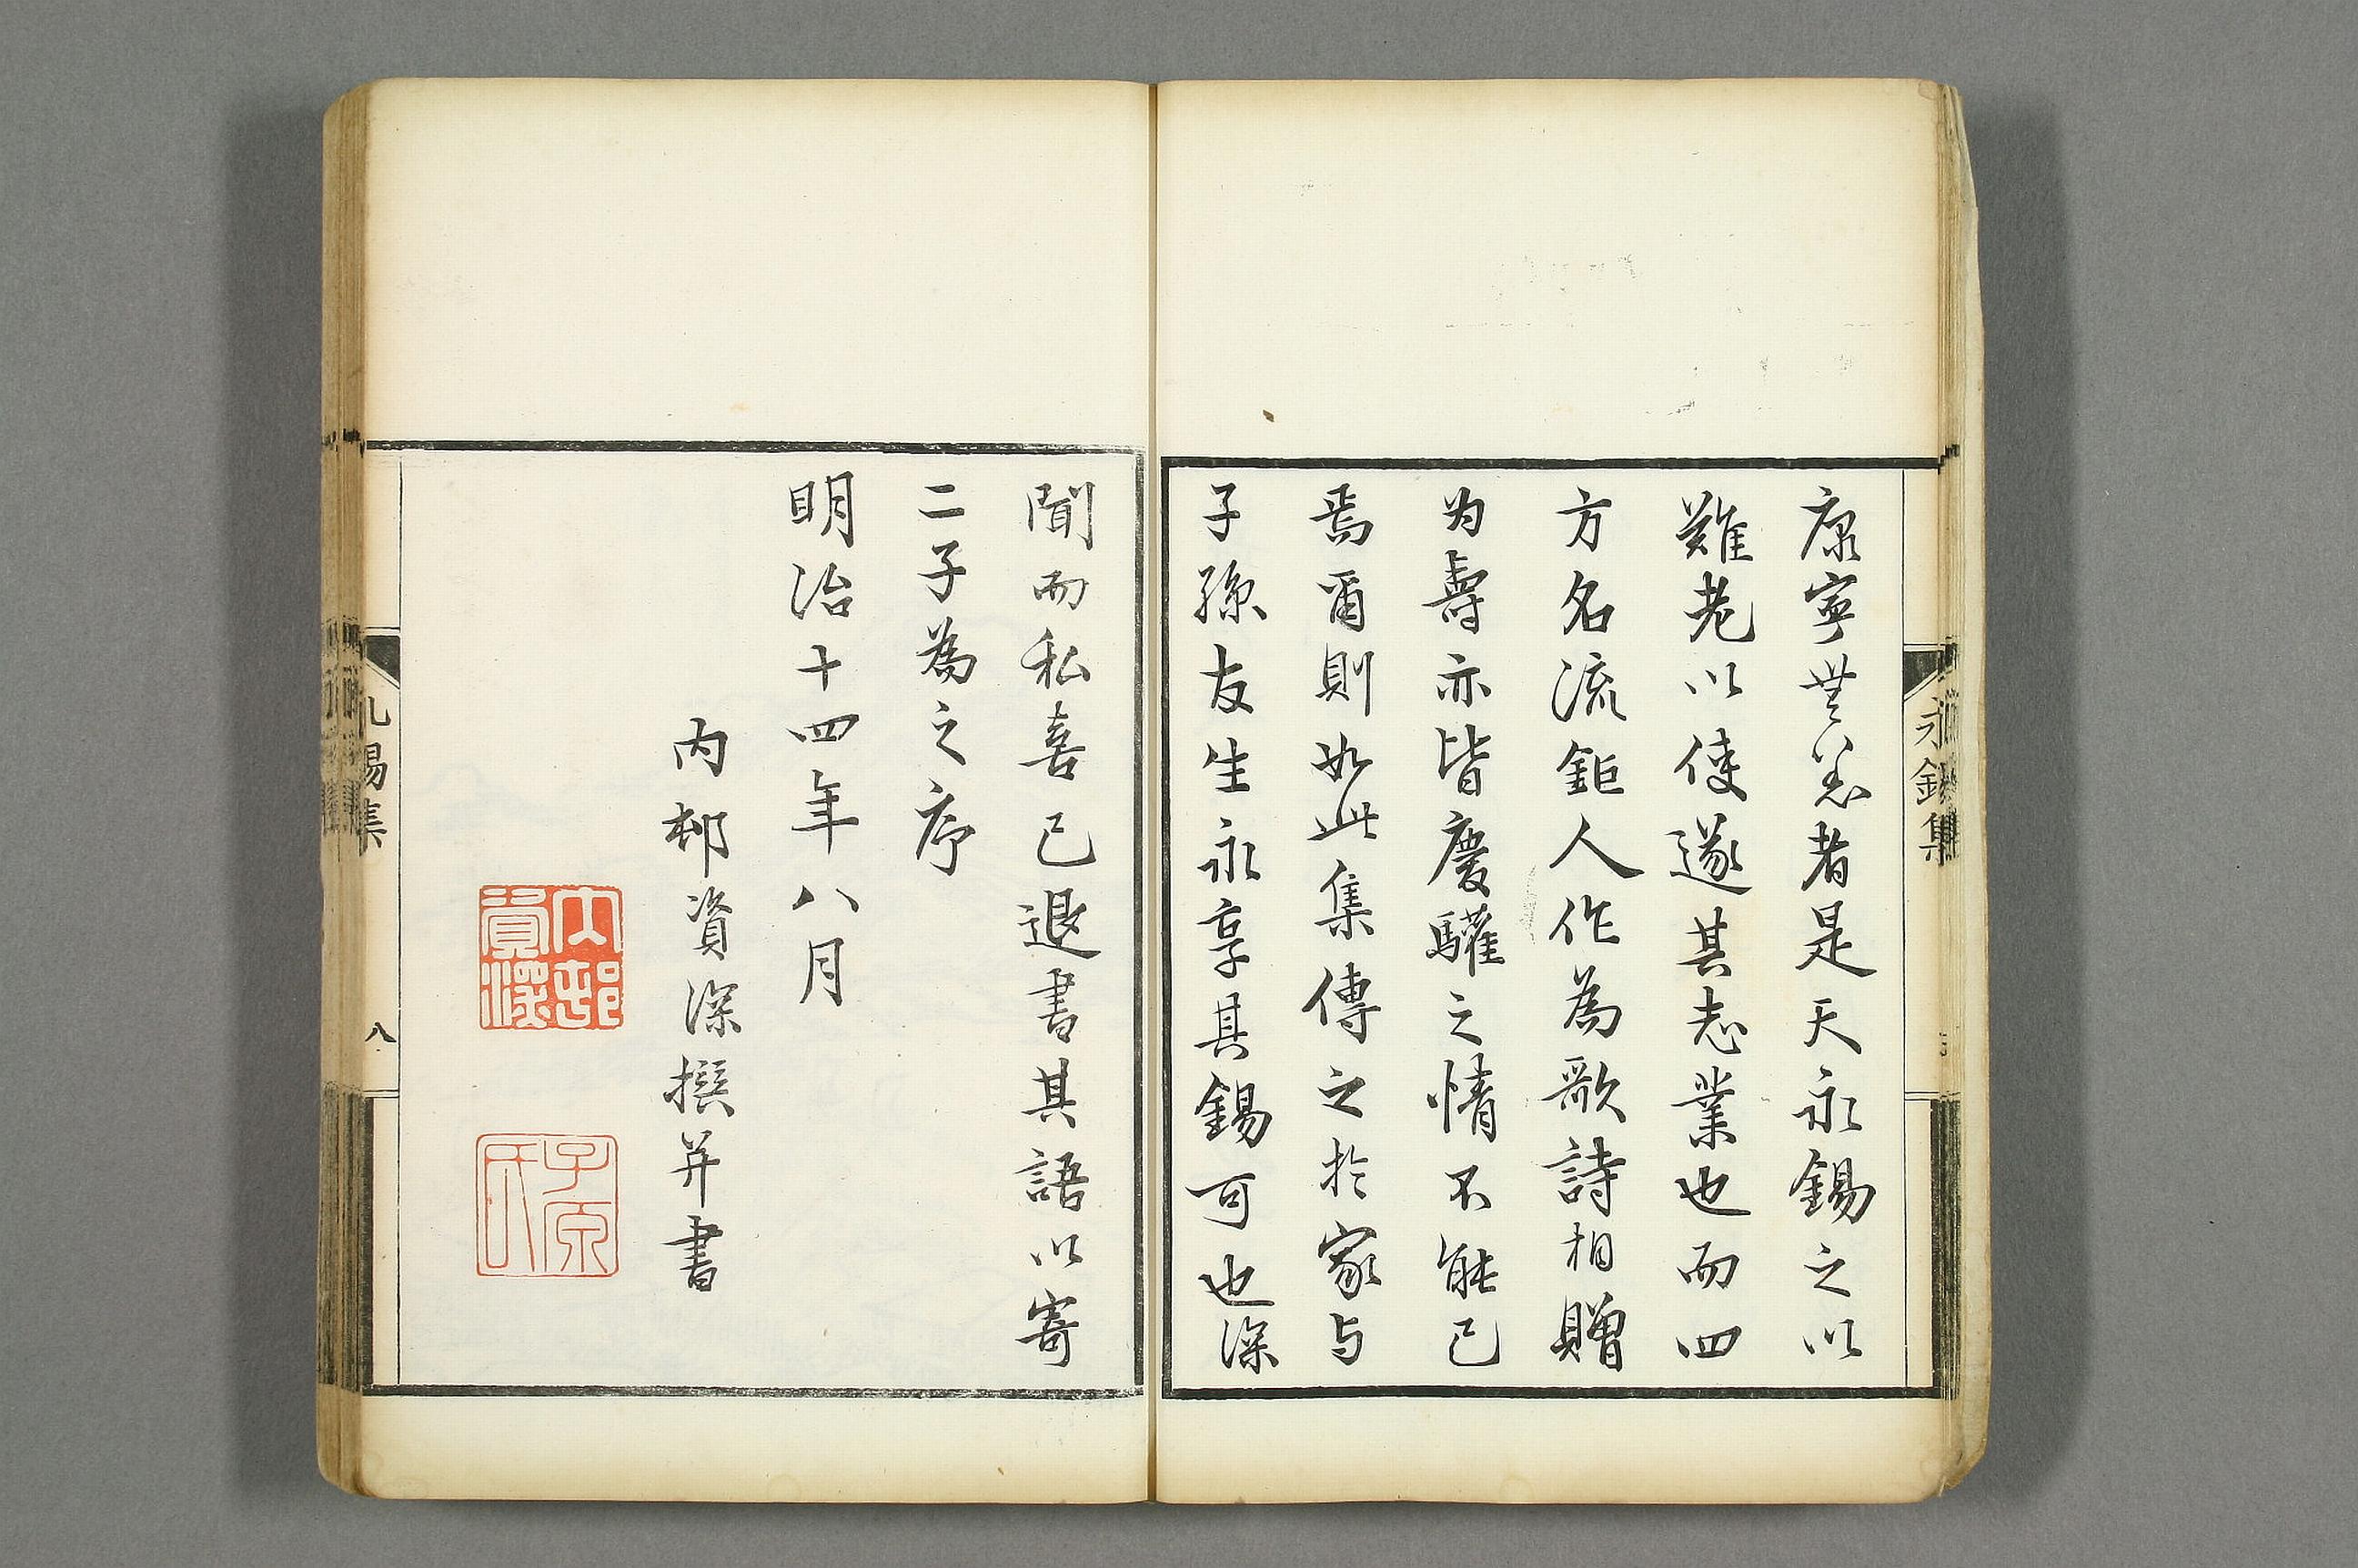 康寧無恙者是天永錫之以
難老以使遂其志業也而四
方名流鉅人作為歌詩相贈
为壽亦皆慶驩之情不能已
焉爾則如此集傳之於家与
子孫友生永享其錫可也深
聞而私喜已退書其語以寄
二子為之序
明治十四年八月
内邨資深撰并書
内邨資深
子原氏
永錫集
錫集
八